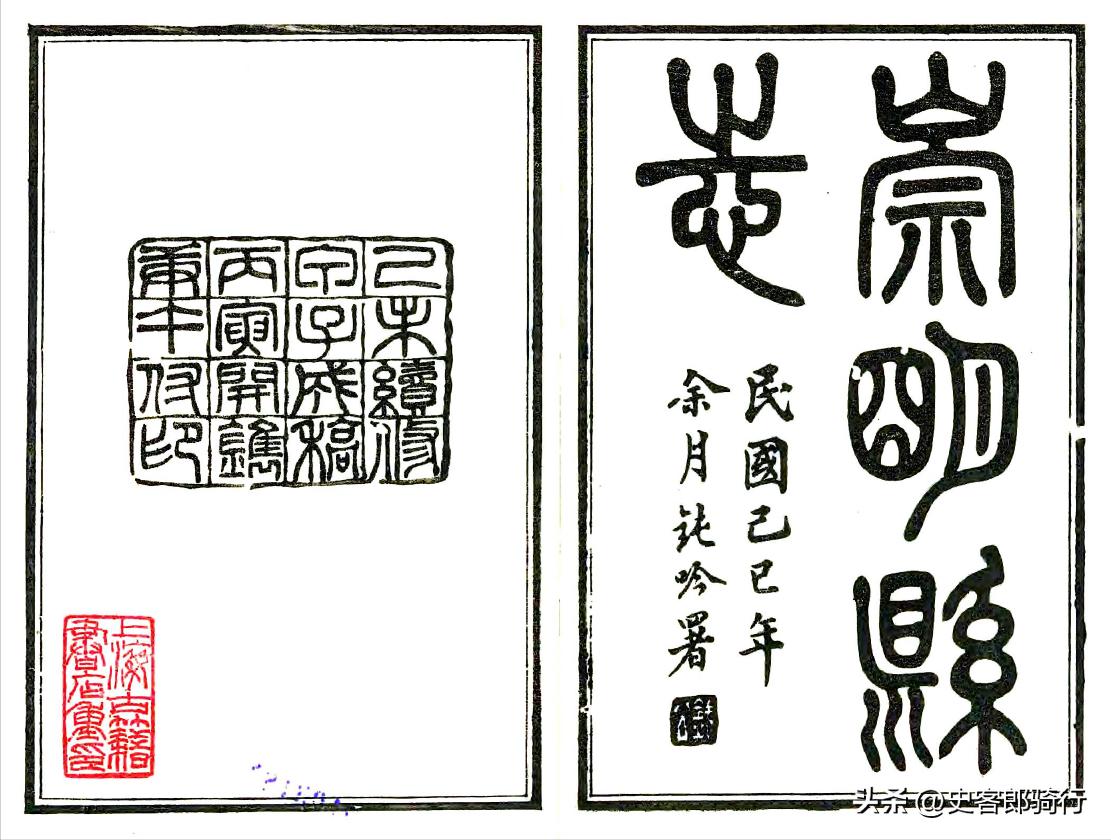 崇明縣
志
民國己巳年
余月鈍吟署
己未續修
甲子成稿
丙寅開鐫
庚午付印
上海古籍
書店重印
头条 @史客郎骑行